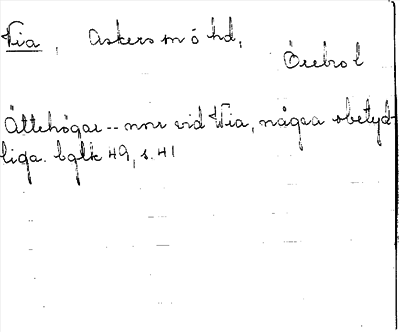 Via, Askers sn ö hd,
Örebro l
Ättehögar -- nnr vid Via, några obetyd-
liga. bglk 49, s. 41